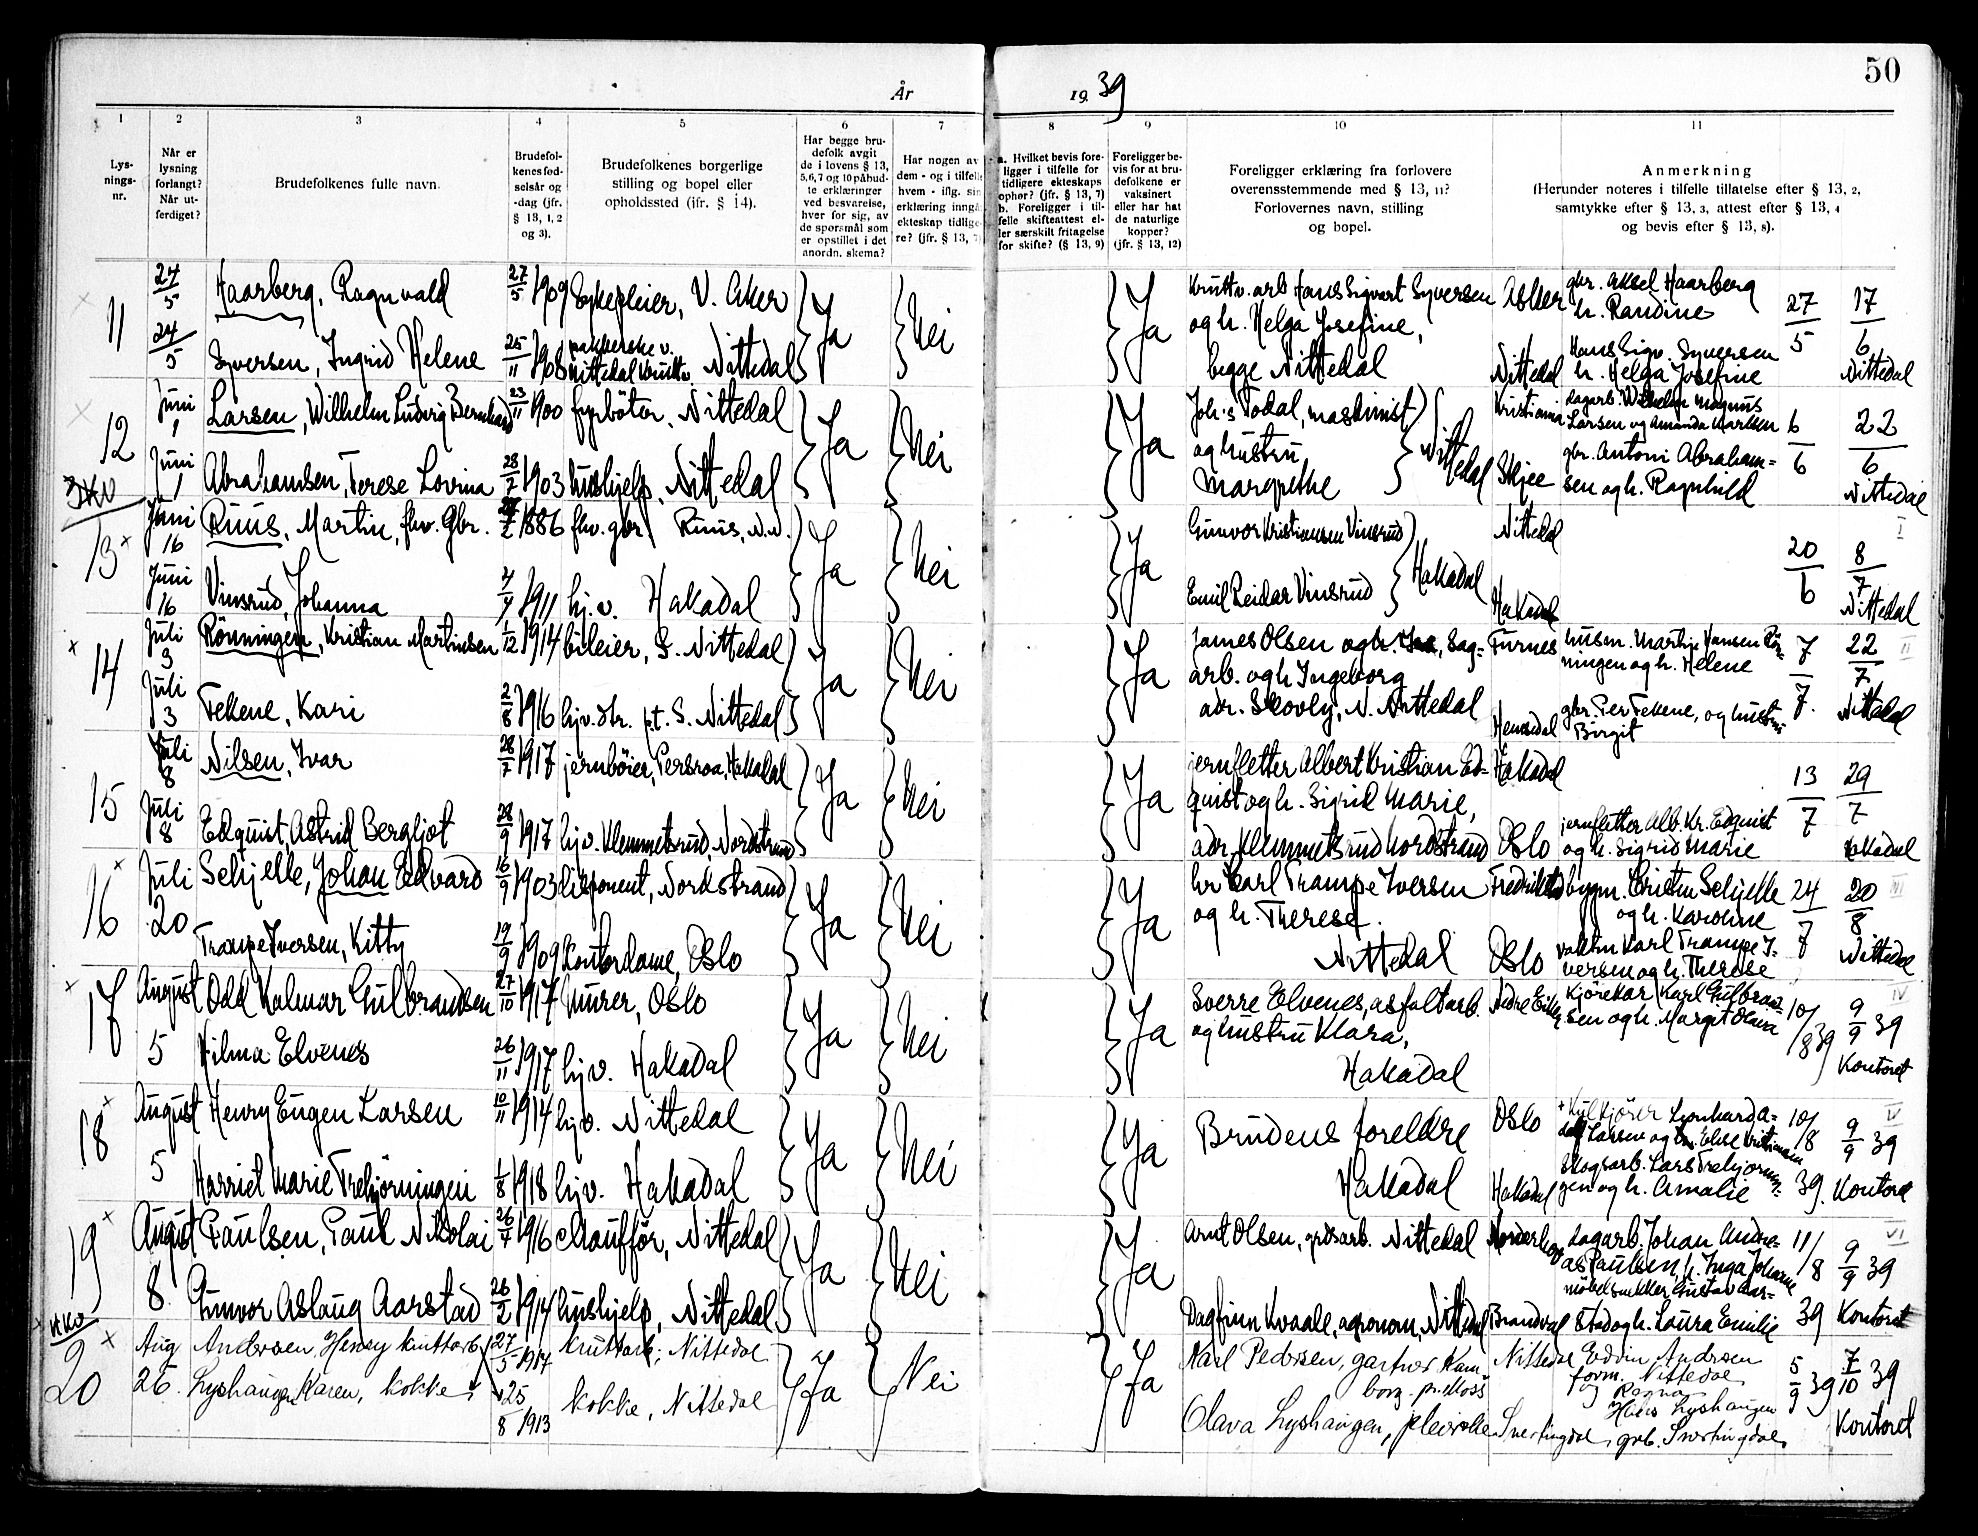 50
År
19 39
1
2
3
4
5
6
7
8
9
10
11
Lys-
nings-
nr.
Når er
lysning
forlangt?
Når ut-
ferdiget?
Brudefolkenes fulle navn.
Brudefol-
kenes fød-
selsår og
-dag (jfr.
§ 13, 1, 2
og 3).
Brudefolkenes borgerlige
stilling og bopel eller
opholdssted (jfr. § 14).
Har begge bru-
defolk avgit
de i lovens § 13,
5, 6, 7 og 10 påbud-
te erklæringer
ved besvarelse,
hver for sig, av
de spørsmål som
er opstillet i det
anordn. skema?
Har nogen av
dem - og i tilfelle
hvem - iflg. sin
erklæring inngå
ekteskap tidlige-
re? (jfr. § 13, 7
a. Hvilket bevis fore-
ligger i tilfelle for
tidligere ekteskaps
ophør? (jfr. § 13, 7)
b. Foreligger i til-
felle skifteattest el-
ler særskilt fritagelse
for skifte? (§ 13, 9)
Foreligger be-
vis for at bru-
defolkene er
vaksinert
eller har hat
de naturlige
kopper?
(jfr. § 13, 12)
Foreligger erklæring fra forlovere
overensstemmende med § 13, 11?
Forlovernes navn, stilling
og bopel.
Anmerkning
(Herunder noteres i tilfelle tillatelse efter § 13, 2,
samtykke efter § 13, 3, attest efter § 13, 4
og bevis efter § 13, 8).
11
24/5 Haarberg, Ragnvald 27/5 1909 Sykepleier, V. Aker Ja Nei Ja Kruttv. arb Hans Sigvart Syversen Asker gbr. Aksel Haarberg 27/5 17/6
og h. Helga Josefine, h. Randine
24/5 Syversen, Ingrid Helene 25/11 1908 pakkerske v. Hans Sigv. Syversen
Nittedal Kruttv. Nittedal begge Nittedal Nittedal h. Helga Josefine Nittedal
12
Juni 1 Larsen, Wilhelm Ludvig Bernhard 23/11 1900 fyrbøter, Nittedal Ja Nei Ja Joh.s Todal, maskinist Kristiania dagarb. Wilhelm Magnus 6/6 22/6
og hustru Nittedal Larsen og Amanda Karlsen
Juni 1 Abrahamsen, Terese Lovina 28/7 1903 hushjelp, Nittedal Margrethe Skjee gbr. Antoni Abraham-
sen og h. Ragnhild Nittedal
13
Juni 16 Ruus, Martin, fhv. Gbr. 1886 fhv. gbr. Ruus, N.N. Ja Nei Ja Gunvor Kristiansen Vinsrud Nittedal 20/6 8/7
I
Juni 16 Vinsrud, Johanna 1911 hj.v. Hakadal Emil Reidar Vinsrud Hakadal Hakadal Nittedal
14
Juli 3 Rönningen, Kristian Martinsen 1/12 1914 bileier, S. Nittedal Ja Nei Ja James Olsen og h. Sag- Furnes husm. Martin Hansen Rön- 7/7 22/7
II
arb. og h Ingeborg ningen og h. Helene
Juli 3 Fekene, Kari 2/8 1916 hjv. dtr. p.t. S. Nittedal adr. Skovly, N. Nittedal Hemsedal gbr. Per Fekene, og hustru
Birgit Nittedal
15
Juli 8 Nilsen, Ivar 28/7 1917 jernbøier, Persroa, Hakadal Ja Nei Ja jernfletter Albert Kristian Ed- Hakadal 13/7 29/7
quist og h. Sigrid Marie,
Juli 8 Edquist, Astrid Bergljot 28/9 1917 hjv. Klemmetsrud, Nordstrand adr. Klemmetsrud Nordstrand Oslo jernfletter Alb. Kr. Edquist
og h. Sigrid Marie Hakadal
16
Juli 20 Schjelle, Johan Edvard 16/9 1903 disponent, Nordstrand Ja Nei Ja hr Karl Trampe Iversen bygm. Cristen Schjelle 24/7 20/8
III
og h. Therese. og h. Karoline
Trampe Iversen, Kitty 19/9 1909 Kontordame, Oslo Nittedal Oslo vaktm Karl Trampe I-
versen og h. Therese Nittedal
17
August 5 Odd Kalmar Gulbrandsen 27/10 1917 Murer, Oslo Ja Nei Ja Sverre Elvenes, asfaltarb. Nedre Eiker Kjørekar Karl Gulbrand- 10/8 39 9/9 39
IV
og hustru Klara, sen og h. Margit Olava
Vilma Elvenes 26/11 1917 hjv. Hakadal Hakadal Kontoret
18
August 5 Henry Eugen Larsen 10/11 1914 hjv. Nittedal Ja Nei Ja Brudens foreldre Oslo Kulkjører Leonhard A- 10/8 39. 9/9 39
dolf Larsen og h. Elise Kristiansen
Harriet Marie Trehjørningen 1/8 1918 hjv. Hakadal Hakadal Hakadal Skogsarb. Lars Trehjørnin-
gen og h. Amalie Kontoret
19
August 8. Paulsen, Paul Nikolai 26/7 1916 chauffør, Nittedal Ja Nei Ja Arnt Olsen, grdsarb. Nittedal Norderhov dagarb. Johan Andre- 11/8 39 9/9 39
VI
as Paulsen, h. Inga Johanne
Gunvor Aslaug Aarstad 26/2 1914 hushjelp, Nittedal Dagfinn Kvaale, agronom, Nittedal Brandval møbelsnekker Gustav Aar-
stad og h. Laura Emilie Kontoret
20
Aug 26. Andersen, Henry kruttarb. 27/5 1914 kruttarb. Nittedal Ja Nei Ja Karl Pedersen, gartner Kam- Nittedal Edvin Andersen 5/9 39 7/10 39
borg pr. Moss form. Nittedal
og Ragna
Lyshaugen Karen, kokke 25/8 1913 kokke, Nittedal Olava Lyshaugen, pleierske Svertingdal Hans Lyshaugen
grb. Svertingdal Kontoret